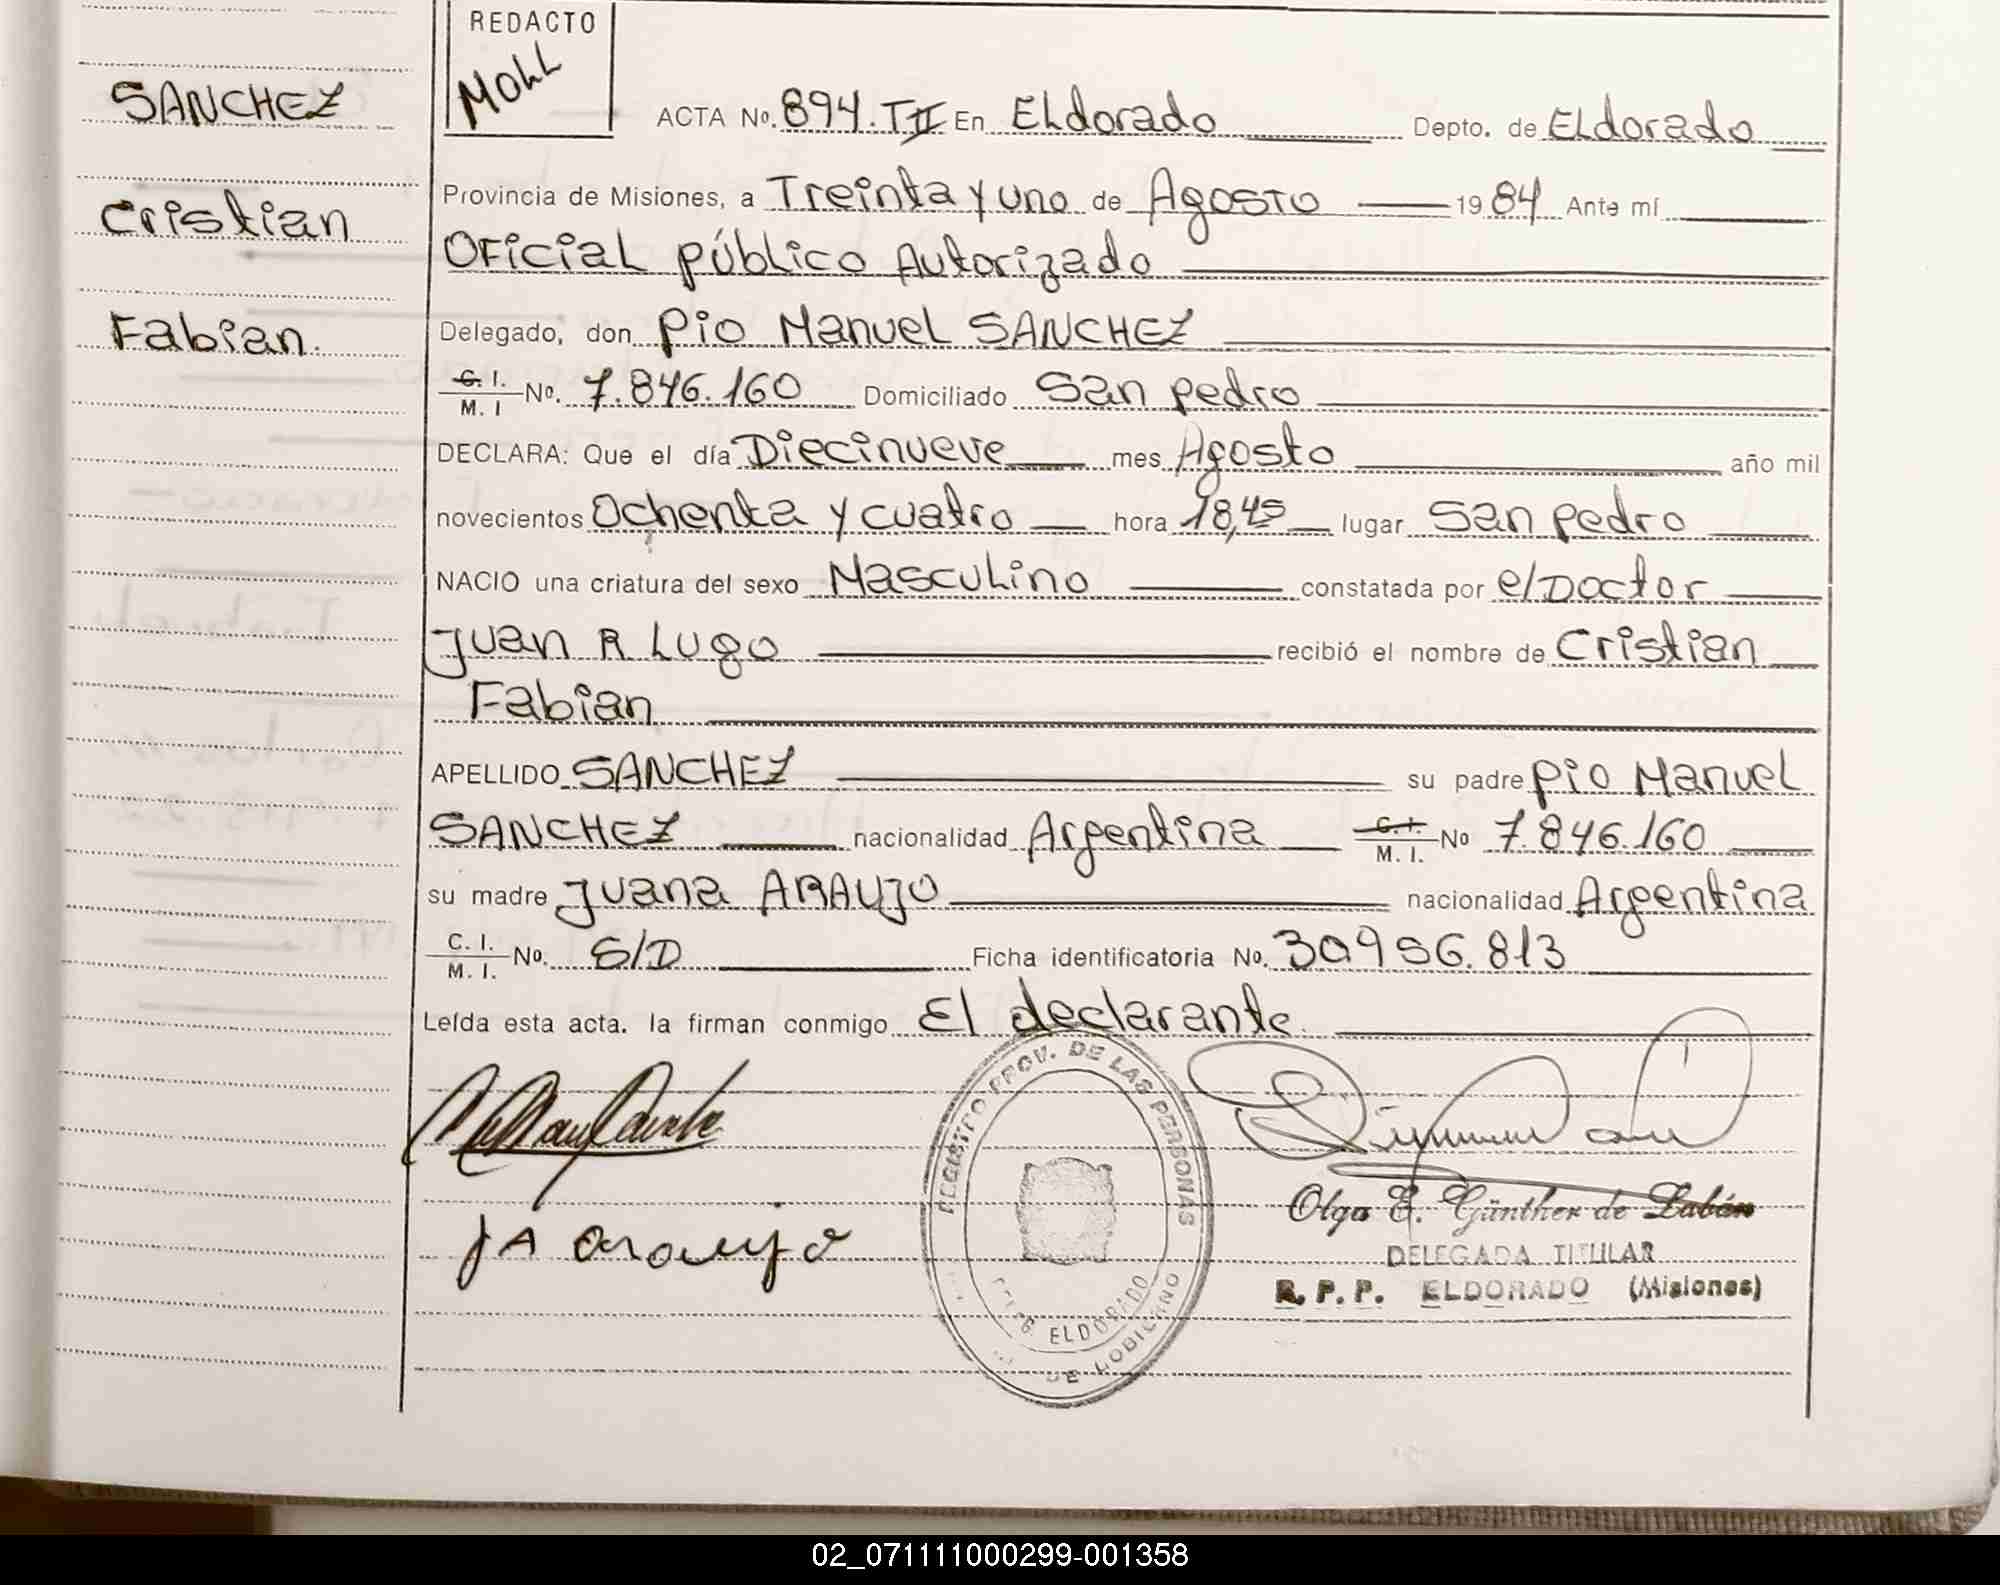 REDACTO
MOLL
SANCHEZ
Cristian
Fabian.
ACTA No. 894.TII En ELdorado Depto. de ELdorado
Provincia de Misiones, a Treinta y uno de Agosto 1984 Ante mí
Oficial público Autorizado
Delegado, don Pio Manuel SANCHEZ
C. I. / M. I No. 7.846.160 Domiciliado San pedro
DECLARA: Que el día Diecinueve mes Agosto año mil
novecientos Ochenta y cuatro hora 18,45 lugar San pedro
NACIO una criatura del sexo Masculino constatada por el Doctor
Juan R Lugo recibió el nombre de Cristian
Fabian
APELLIDO SANCHEZ su padre Pio Manuel
SANCHEZ nacionalidad Argentina C. I. / M. I. No 7.846.160
su madre Juana ARAUJO nacionalidad Argentina
C. I. / M. I. No. S/D Ficha identificatoria No. 30956.813
Leída esta acta. la firman conmigo El declarante.
JA araujo
REGISTRO PROV. DE LAS PERSONAS
ELDORADO
Olga E. Günther de Labán
DELEGADA TITULAR
R. P. P. ELDORADO (Misiones)
02_071111000299-001358